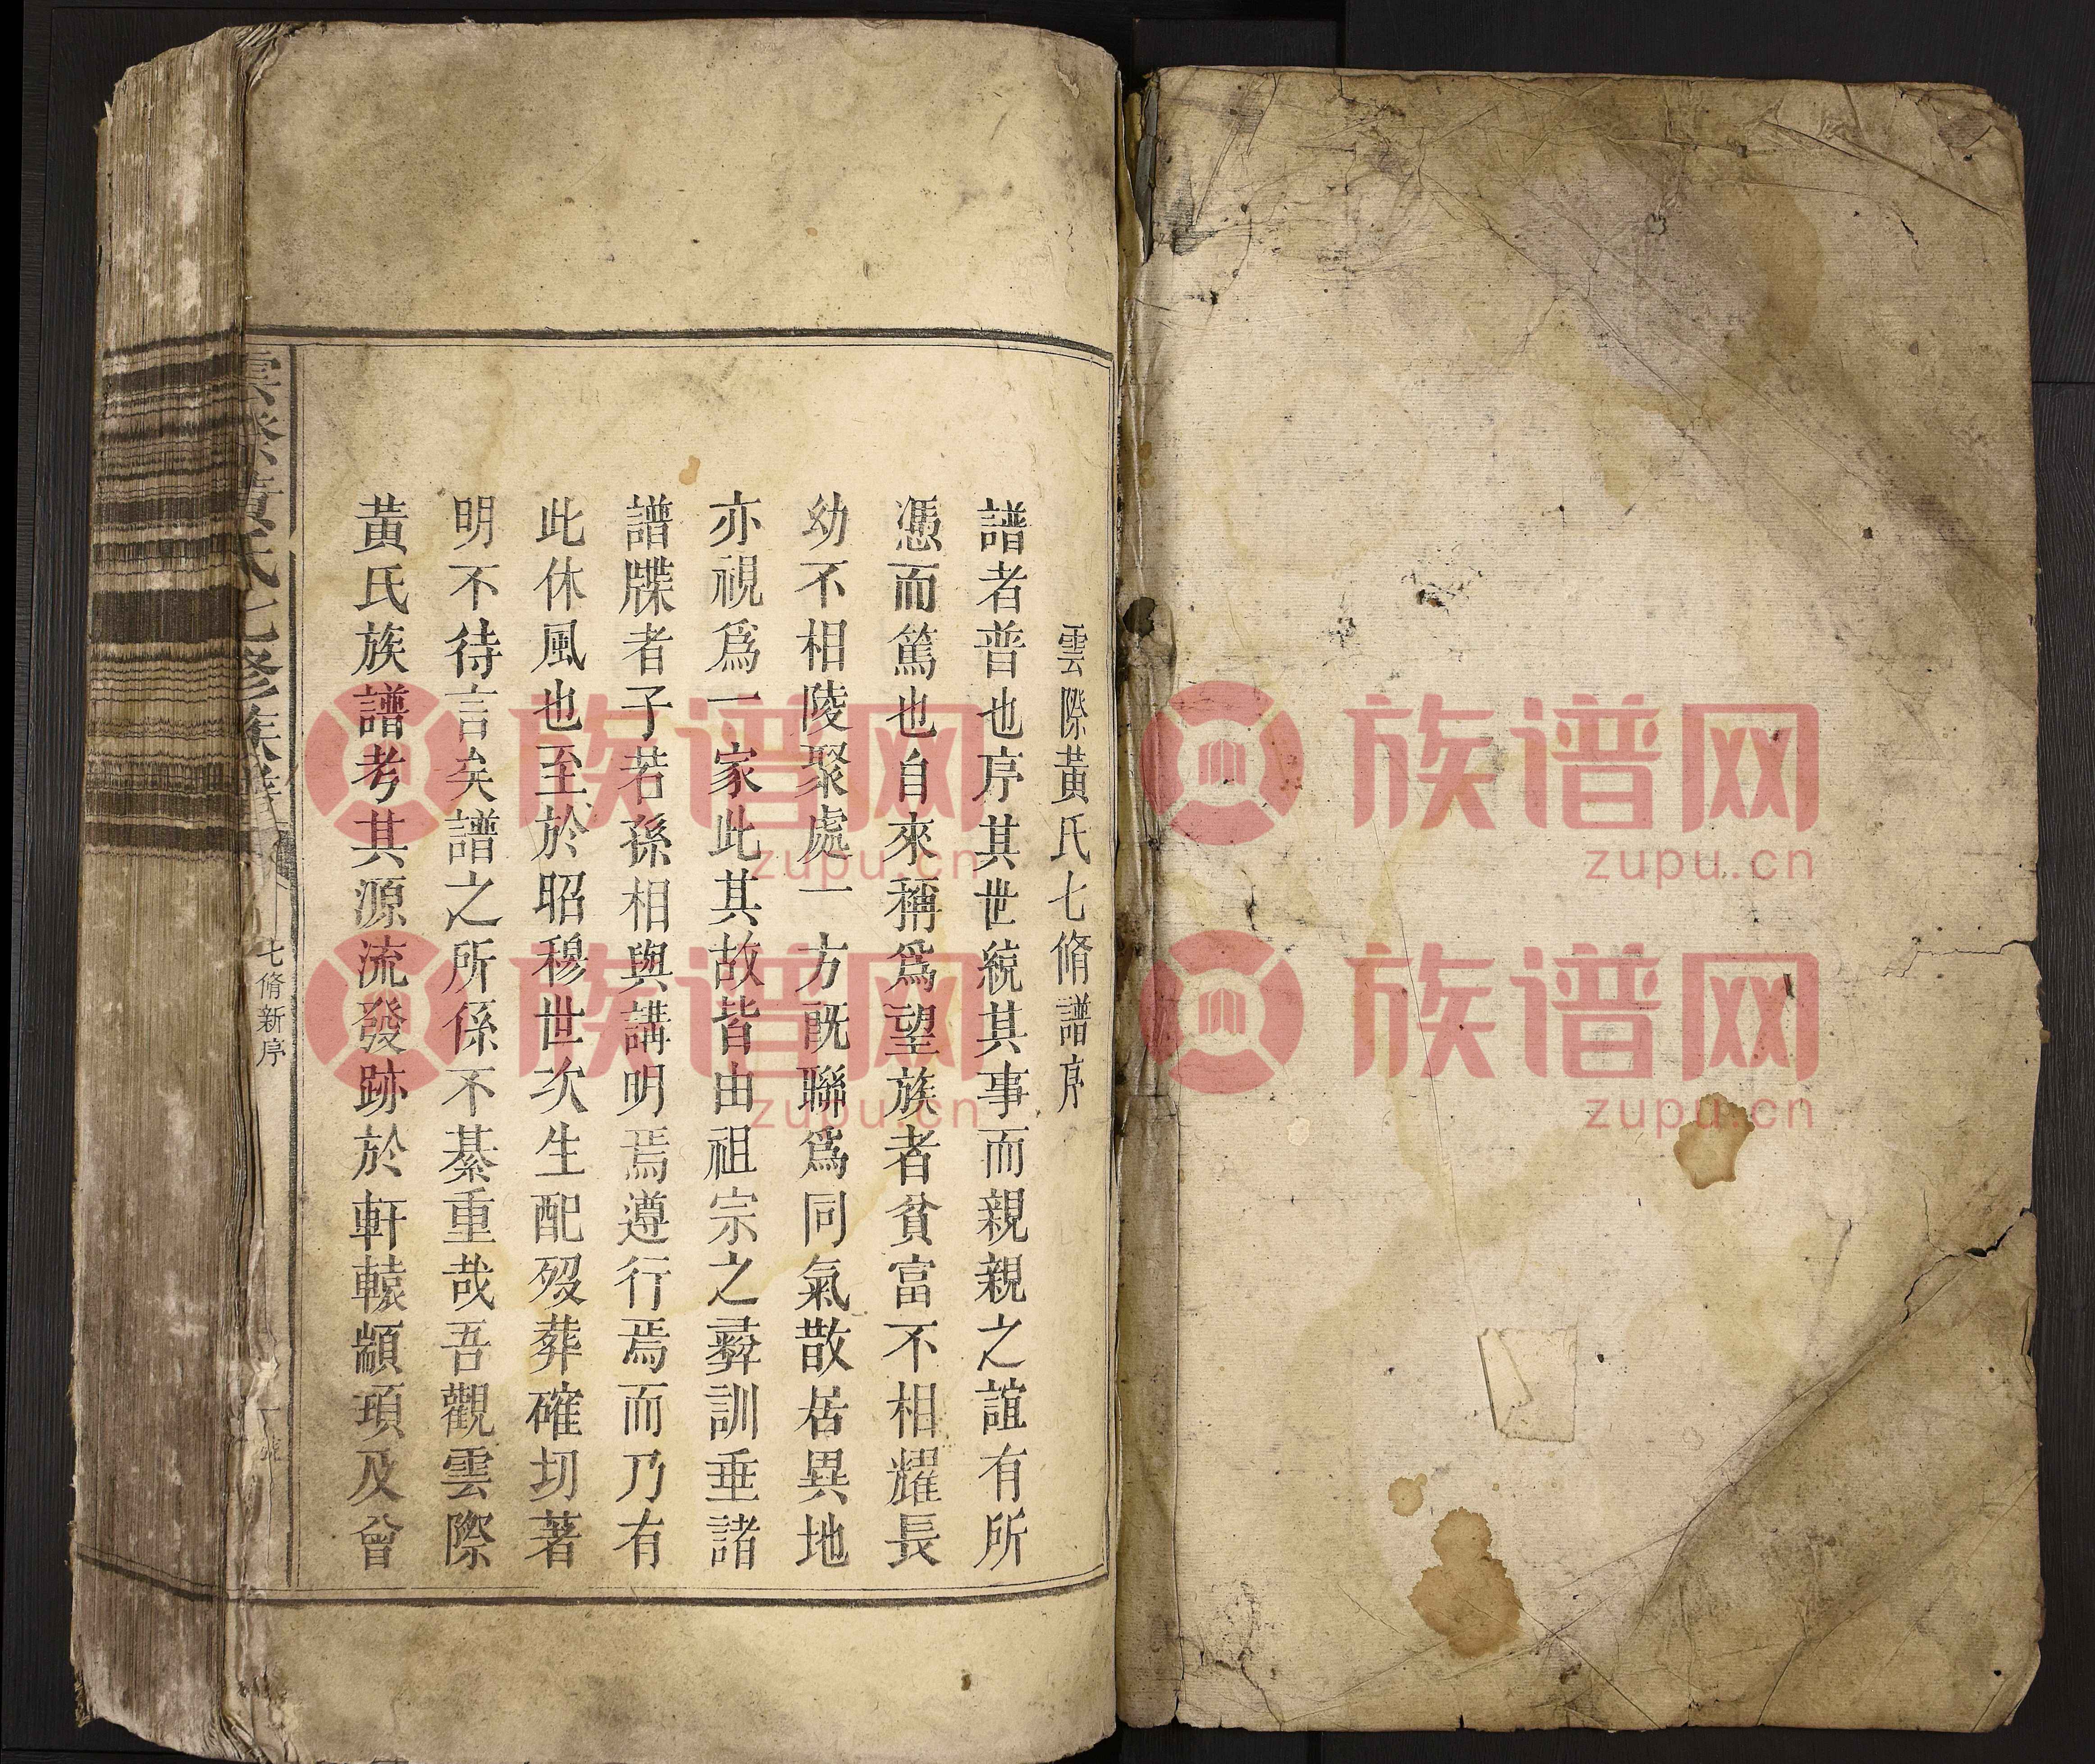 雲際黃氏七脩譜序
譜者普也序其世統其事而親親之誼有所
憑而篤也自來稱為望族者貧富不相耀長
幼不相陵聚處一方既聯為同氣散居異地
亦視為一家此其故皆由祖宗之彝訓垂諸
譜牒者子若孫相與講明焉遵行焉而乃有
此休風也至於昭穆世次生配歿葬確切著
明不待言矣譜之所係不綦重哉吾觀雲際
黃氏族譜考其源流發跡於軒轅顓頊及曾
雲際黃氏七修族譜
七脩新序
一
族谱网
zupu.cn
族谱网
zupu.cn
族谱网
zupu.cn
族谱网
zupu.cn